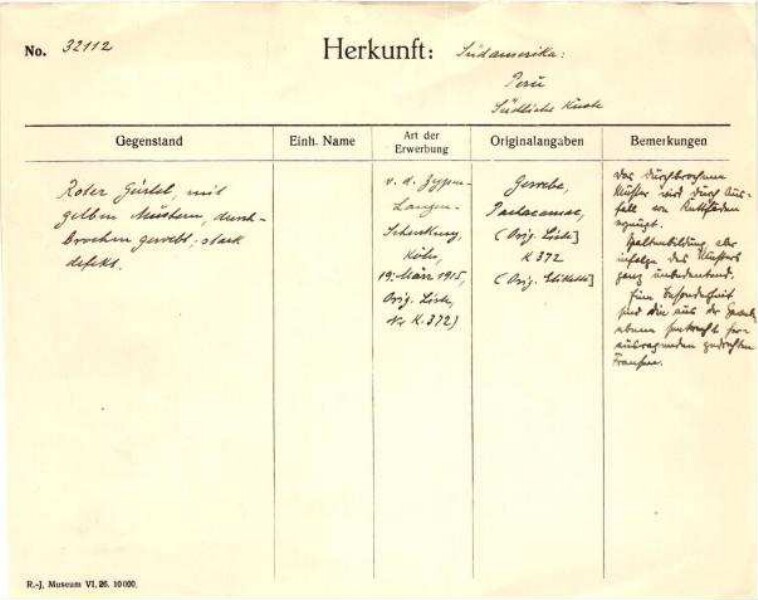 No. 32112
Herkunft: Südamerika:
Peru
Südliche Küste
Gegenstand
Einh. Name
Art der
Erwerbung
Originalangaben
Bemerkungen
Roter Gürtel, mit
gelben Mustern, durch-
brochen gewebt, stark
defekt.
v. d. Zypen-
Langen-
Schenkung,
Köln,
19. März 1915,
Orig. Liste,
Nr K. 372)
Gewebe,
Pachacamac,
(Orig. Liste]
K 372
(Orig. Etikette]
Das durchbrochene
Muster wird durch Aus-
fall von Kettfäden
erzeugt.
Spaltenbildung, aber
infolge des Musters
ganz unbedeutend.
Eine Besonderheit
sind die aus der Gewebe-
ebene senkrecht her-
ausragenden gedrehten
Fransen.
R.-J. Museum VI. 26. 10000.